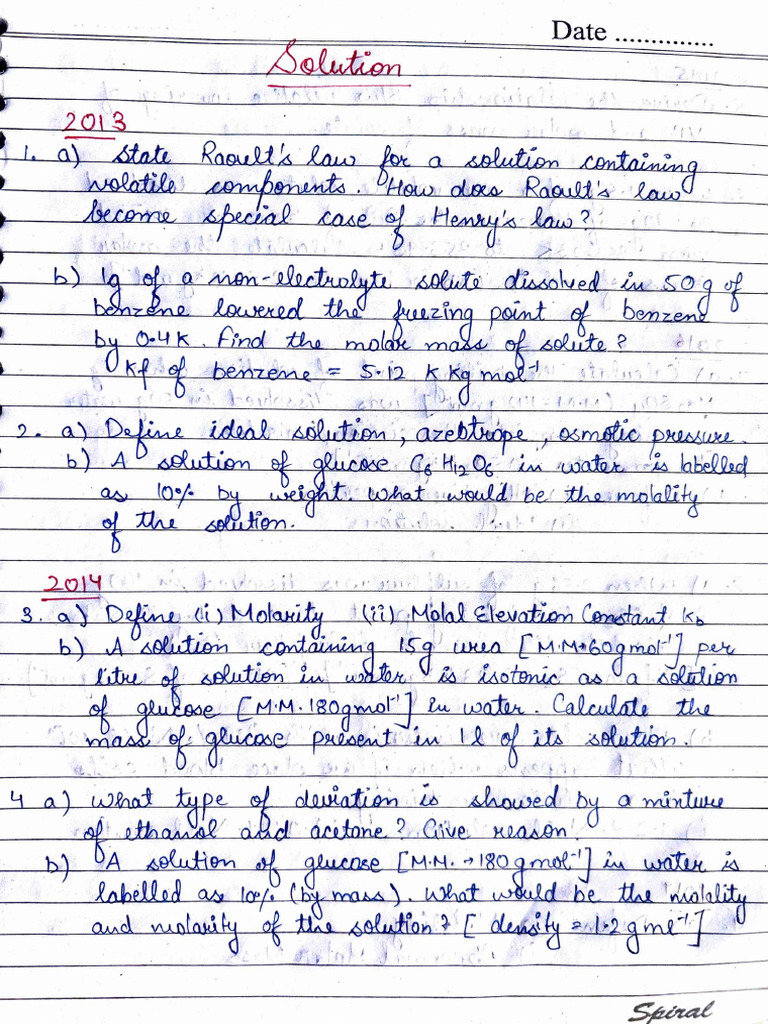 Date .............
Solution
2013
1. a) State Raoult's law for a solution containing
volatile components. How does Raoult's law
become special case of Henry's law?
b) 1g of a non-electrolyte solute dissolved in 50 g of
benzene lowered the freezing point of benzene
by 0.4 K. Find the molar mass of solute?
Kf of benzene = 5.12 K Kg mol⁻¹
2. a) Define ideal solution, azeotrope, osmotic pressure.
b) A solution of glucose C₆H₁₂O₆ in water is labelled
as 10% by weight. What would be the molality
of the solution.
2014
3. a) Define (i) Molarity (ii) Molal Elevation Constant Kb
b) A solution containing 15g urea [M.M→60gmol⁻¹] per
litre of solution in water is isotonic as a solution
of glucose [M.M. 180gmol⁻¹] in water. Calculate the
mass of glucose present in 1l of its solution.
4 a) What type of deviation is showed by a mixture
of ethanol and acetone? Give reason.
b) A solution of glucose [M.M. → 180 gmol⁻¹] in water is
labelled as 10% (by mass). What would be the molality
and molarity of the solution? [density = 1.2 gml⁻¹]
Spiral